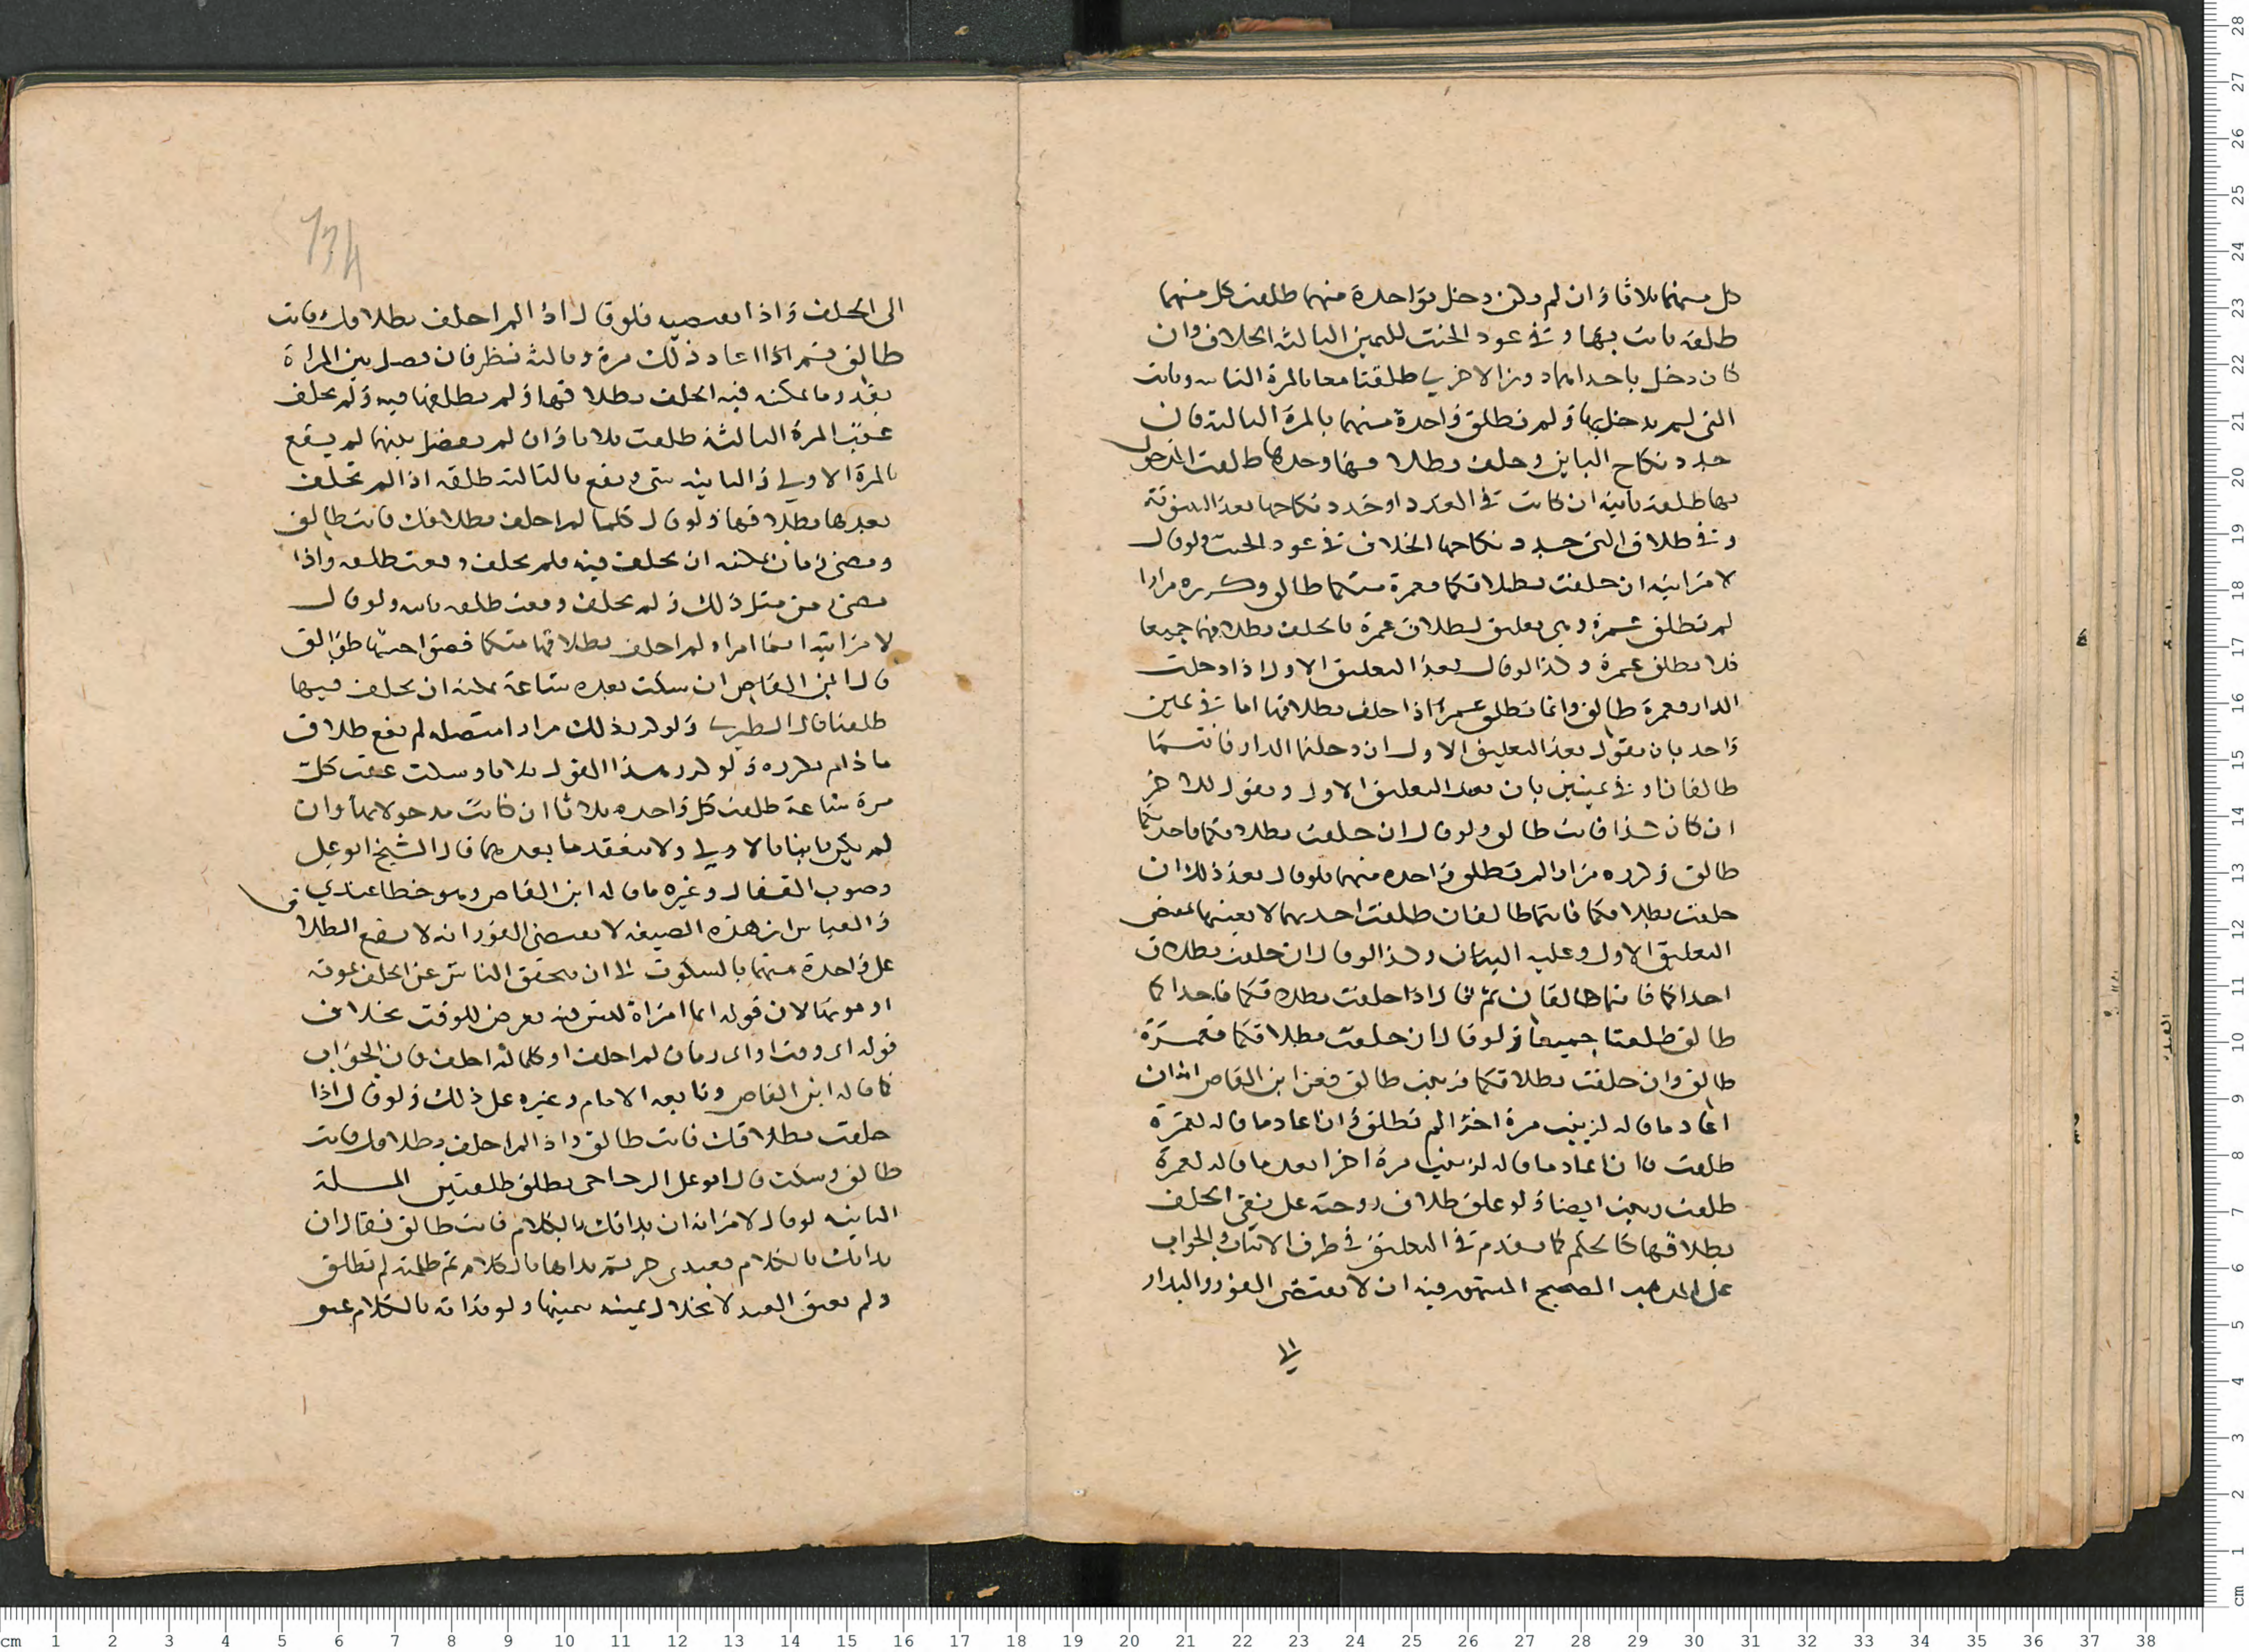 كل منهما ثلاثا وان لم يكن دخل بواحدة منهما طلقت كل منهما
طلقة بانت بها وفي عود الحنث لليمين الثالثة الخلاف وان
كان دخل باحداهما دون الاخرى طلقتا معا بالمرة الثانية وبانت
التي لم يدخل بها ولم تطلق واحدة منهما بالمرة الثالثة فان
جدد نكاح الباين وحلف بطلاقها وحدها طلقت المدخول
بها طلقة ثانية ان كانت في العدد او جدد نكاحها بعد البينونة
وفي طلاق التي جدد نكاحها الخلاف في عود الحنث ولو قال
لامرأتيه ان حلفت بطلاقكما فعمرة منكما طالق وكرره مرارا
لم تطلق عمرة وهي تعليق لطلاق عمرة بالحلف بطلاقهما جميعا
فلا تطلق عمرة وكذا لو قال بعد التعليق الاول اذا دخلت
الدار فعمرة طالق وانما تطلق عمرة اذا حلف بطلاقهما اما في يمين
واحد بان يقول بعد التعليق الاول ان دخلتما الدار فانتما
طالقان او في يمينين بان بعد التعليق الاول ويقول للاخرى
ان كان كذا فانت طالق ولو قال ان حلفت بطلاقكما فاحديكما
طالق وكرره مرارا لم تطلق واحدة منهما فلو قال بعد ذلك ان
حلفت بطلاقكما فانتما طالقان طلقت احديهما لا بعينها بمقتضى
التعليق الاول وعليه البيان وكذا لو قال ان حلفت بطلاق
احداكما فانتما طالقان ثم قال اذا حلفت بطلاقكما فاحداكما
طالق طلقتا جميعا ولو قال ان حلفت بطلاقكما فعمرة
طالق وان حلفت بطلاقكما فزينب طالق فعن ابن القاص انه ان
اعاد ما قاله لزينب مرة اخرى لم تطلق وان اعاد ما قاله لعمرة
طلقت وان اعاد ما قاله لزينب مرة اخرى بعد ما قاله لعمرة
طلقت زينب ايضا ولو علق طلاق زوجته على نفي الحلف
بطلاقها فالحكم كما يقدم في التعليق في طرف الاثبات والجواب
على المذهب الصحيح المشهور فيه ان لا يقتضي الفور والبدار
الى
الى الحلف واذا يقتضيه فلو قال اذا لم احلف بطلاقك فانت
طالق ثم اذا اعاد ذلك مرة وثالثة نظر فان فصل بين المراة
بقدر ما يمكنه فيه الحلف بطلاقها ولم يطلقها فيه ولم يحلف
عقب المرة الثالثة طلقت ثلاثا وان لم يفصل بينهما لم يقع
بالمرة الاولى والثانية شي ويقع بالثالثة طلقة اذا لم يحلف
بعدها بطلاقها ولو قال كلما لم احلف بطلاقك فانت طالق
ومضى زمان يمكنه ان يحلف فيه فلم يحلف وقعت طلقة واذا
مضى زمن مثل ذلك ولم يحلف وقعت طلقة ثانية ولو قال
لامرأتيه ايما امراة لم احلف بطلاقها منكما فصواحبتها طوالق
قال ابن القاص ان سكت بعده ساعة يمكنه ان يحلف فيها
طلقتا قال الطبري ولو كرر ذلك مرارا متصلة لم يقع طلاق
ما دام يكرره ولو كرر هذا القول ثلاثا وسكت عقب كل
مرة ساعة طلقت كل واحدة ثلاثا ان كانت مدخولا بها وان
لم يكن بانتا بالاولى ولا ينعقد ما بعدها قال الشيخ ابو علي
وصوب القفال وغيره ما قاله ابن القاص وهو خطا عندي
والقياس ان هذه الصيغة لا يقتضي الفور انه لا يقع الطلاق
على واحدة منهما بالسكوت الا ان يتحقق الناس عن الحلف بموته
او موتهما لان قوله ايما امراة ليس فيه تعرض للوقت بخلاف
قوله اي وقت او اي زمان لم احلف او كلما لم احلف فان الجواب
كما قاله ابن القاص وتابعه الامام وغيره على ذلك ولو قال اذا
حلفت بطلاقك فانت طالق واذا لم احلف بطلاقك فانت
طالق وسكت قال ابو علي الزجاجي يطلق طلقتين المسلة
الثانية لو قال لامراته ان بداتك بالكلام فانت طالق فقال ان
بداتك بالكلام فعبدي حر ثم بداها بالكلام ثم كلمته لم تطلق
ولم يعتق العبد لانحلال يمينه بيمينها ولو بداته بالكلام عتق